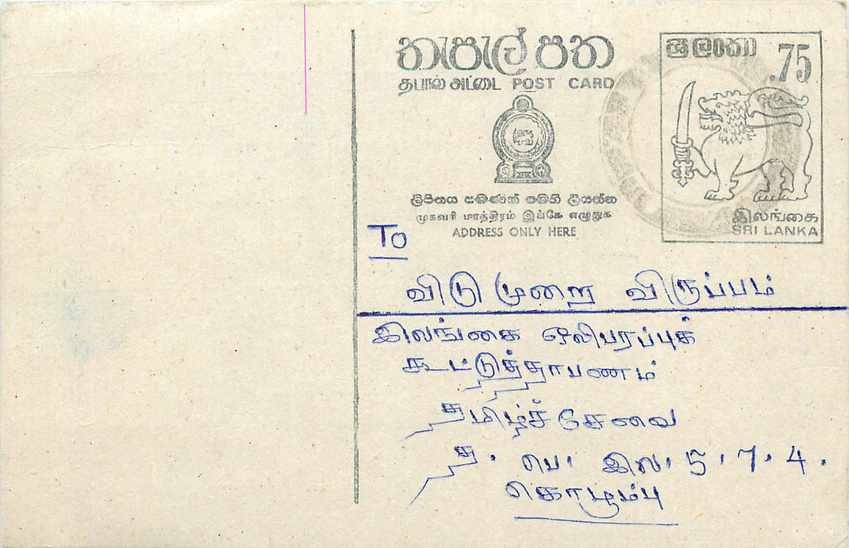 තැපැල් පත
தபால் அட்டை POST CARD
ලිපිනය පමණක් මෙහි ලියන්න
முகவரி மாத்திரம் இங்கே எழுதுக
ADDRESS ONLY HERE
ශ්‍රී ලංකා
.75
இலங்கை
SRI LANKA
To
விடுமுறை விருப்பம்
இலங்கை ஒலிபரப்புக்
கூட்டுத்தாபணம்
தமிழ்ச் சேவை
த. பெ. இல. 5.7.4.
கொழும்பு